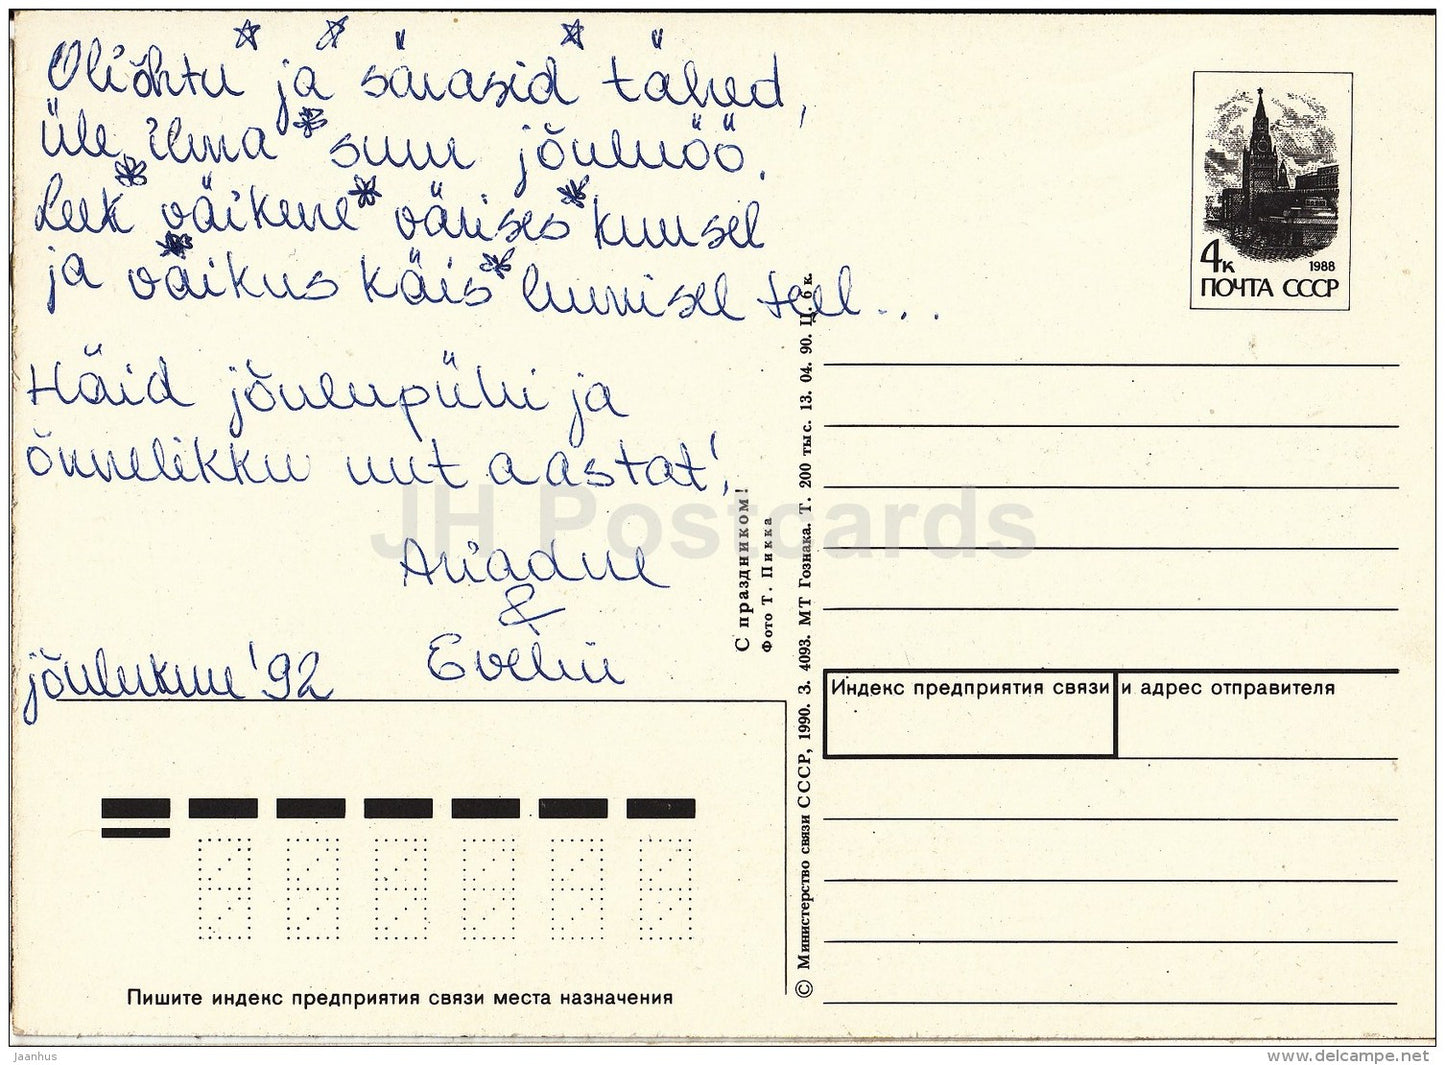 Oli õhtu ja särasid tähed,
üle ilma suur jõuluöö.
Leek väikene värises kuusel
ja väikus käis lumisel teel...
Häid jõulupühi ja
õnnelikku uut aastat!
Ariadne
&
Evelin
jõulukuu '92
4к 1988
ПОЧТА СССР
С праздником!
Фото Т. Пикка
© Министерство связи СССР, 1990. З. 4093. МТ Гознака. Т. 200 тыс. 13. 04. 90. Ц. 6 к.
Индекс предприятия связи и адрес отправителя
Пишите индекс предприятия связи места назначения
JH Postcards
jaanhus
www.delcampe.net